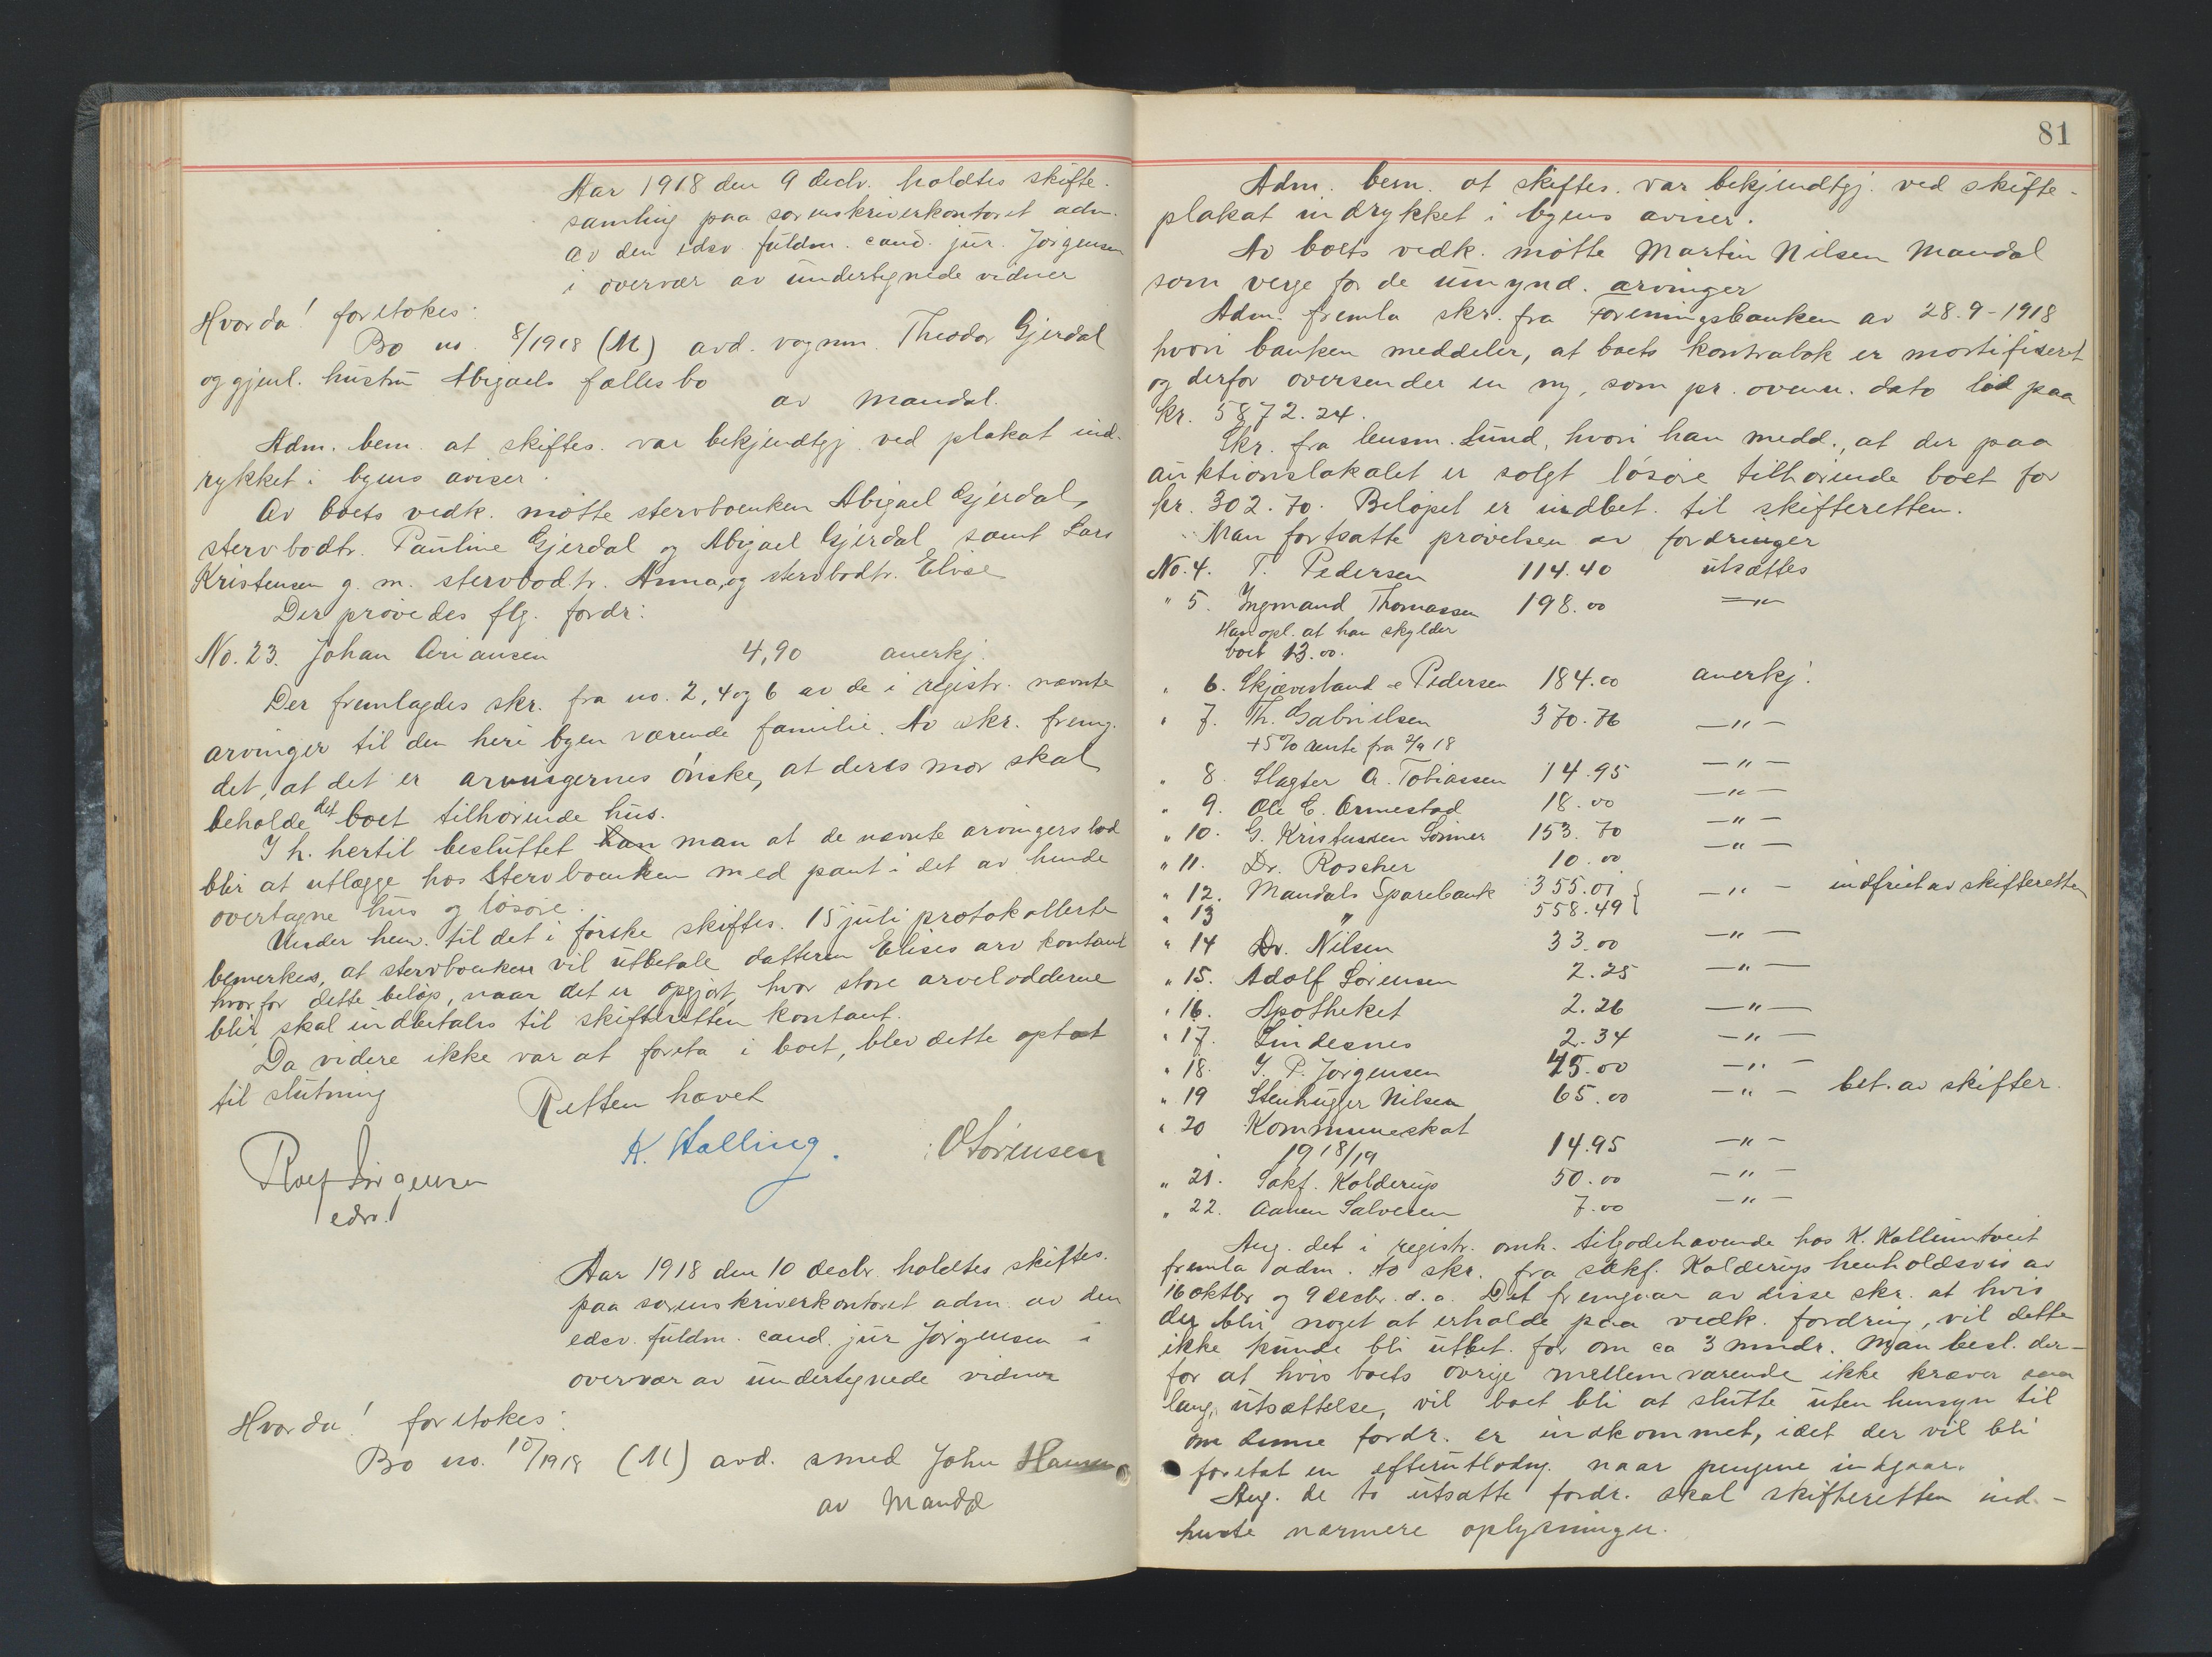 Aar 1918 den 9 decbr. holdtes skifte-
samling paa sorenskriverkontoret adm.
av den edsv. fuldm. cand. jur. Jørgensen
i overvær av undertegnede vidner
Hvorda! foretokes:
Bo no. 8/1918 (M) avd. vognm. Theodor Gjerdal
og gjenl. hustru Abigaels fællesbo
av Mandal.
Adm. bem. at skiftes. var bekjendtgj. ved plakat ind-
rykket i byens aviser.
Av boets vedk. møtte stervboenken Abigael Gjerdal,
stervbodtr. Pauline Gjerdal og Abigael Gjerdal samt Lars
Kristensen g. m. stervbodtr. Anna, og stervbodtr. Elise
Der prøvedes flg. fordr:
No. 23. Johan Ariansen 4,90 anerkj.
Der fremlagdes skr. fra no. 2, 4 og 6 av de i registr. nævnte
arvinger til den heri byen værende familie. Av skr. fremg.
det, at det er arvingernes ønske, at deres mor skal
beholde det boet tilhørende hus.
I h. hertil besluttet man at de nævnte arvingers lod
blir at utlægge hos stervboenken med pant i det av hende
overtagne hus og løsøre.
Under henv. til det i første skiftes. 15 juli protokollerte
bemerkes, at stervboenken vil utbetale datteren Elises arv kontant
hvorfor dette beløp, naar det er opgjort, hvor store arvelodderne
blir skal indbetales til skifteretten kontant.
Da videre ikke var at foreta i boet, blev dette optat
til slutning
Retten hævet
Rolf Jørgensen
edsv.
K. Halling.
O Sørensen
Aar 1918 den 10 decbr. holdtes skiftes.
paa sorenskriverkontoret adm. av den
edsv. fuldm. cand. jur Jørgensen i
overvær av undertegnede vidner
Hvorda! foretokes:
Bo no. 10/1918 (M) avd. smed John Hansen
av Mandal
81
Adm. bem. at skiftes. var bekjendtgj. ved skifte-
plakat indrykket i byens aviser.
Av boets vedk. møtte Martin Nilsen Mandal
som verge for de umynd. arvinger
Adm. fremla skr. fra Foreningsbanken av 28.9-1918
hvori banken meddeler, at boets kontrabok er mortifiseret
og derfor oversender en ny, som pr. ovenn. dato lød paa
kr. 5872.24.
Skr. fra lensm. Lund, hvori han medd., at der paa
auktionslokalet er solgt løsøre tilhørende boet for
kr. 302.70. Beløpet er indbet. til skifteretten.
Man fortsatte prøvelsen av fordringer
No. 4. T. Pedersen 114.40 utsættes
" 5. Ingmand Thomassen 198.00 — " —
Han opl. at han skylder
boet 13.00.
" 6. Skjævesland & Pedersen 184.00 anerkj.
" 7. Th. Gabrielsen 370.76 — " —
+5% rente fra 2/9 18
" 8. Slagter A. Tobiassen 14.95 — " —
" 9. Ole C. Ormestad 18.00 — " —
" 10. G. Kristensen Sønner 153.70 — " —
" 11. Dr. Roscher 10.00 — " —
" 12. Mandals Sparebank 355.01 — " — indfriet av skifteretten
" 13 " 558.49
" 14 Dr. Nilsen 33.00 — " —
" 15. Adolf Sørensen 2.25 — " —
" 16. Apotheket 2.26 — " —
" 17. Lindesnes 2.34 — " —
" 18. I. P. Jørgensen 45.00 — " —
" 19 Stenhugger Nilsen 65.00 — " — bet. av skifter.
" 20 Kommuneskat
1918/19 14.95 — " —
" 21. Sakf. Kolderup 50.00 — " —
" 22. Aanen Salvesen 7.00 — " —
Ang. det i registr. omh. tilgodehavende hos K. Kallumtveit
fremla adm. to skr. fra sakf. Kolderup henholdsvis av
16 oktbr og 9 decbr. d.a. Det fremgaar av disse skr. at hvis
der blir noget at erholde paa vedk. fordring, vil dette
ikke kunde bli utbet. før om ca 3 mndr. Man besl. der-
for at hvis boets øvrige mellemværende ikke kræver saa
lang utsættelse, vil boet bli at slutte uten hensyn til
om denne fordr. er indkommet, idet der vil bli
foretat en efterutlodng. naar pengene indgaar.
Ang. de to utsatte fordr. skal skifteretten ind-
hente nærmere oplysninger.